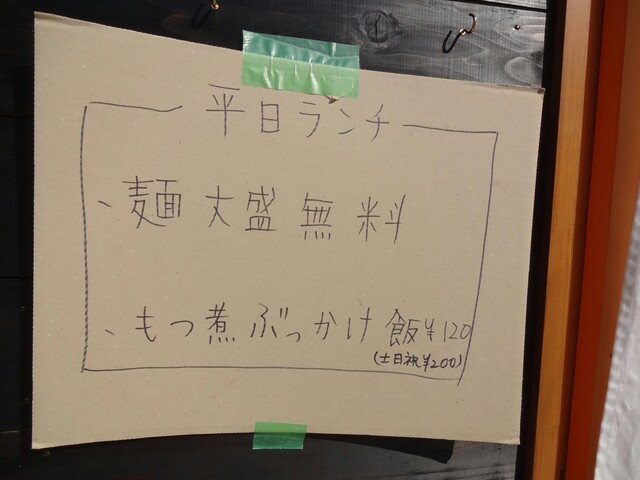 平日ランチ
、麺 大盛 無料
、もつ煮ぶっかけ飯¥120
(土日祝¥200)